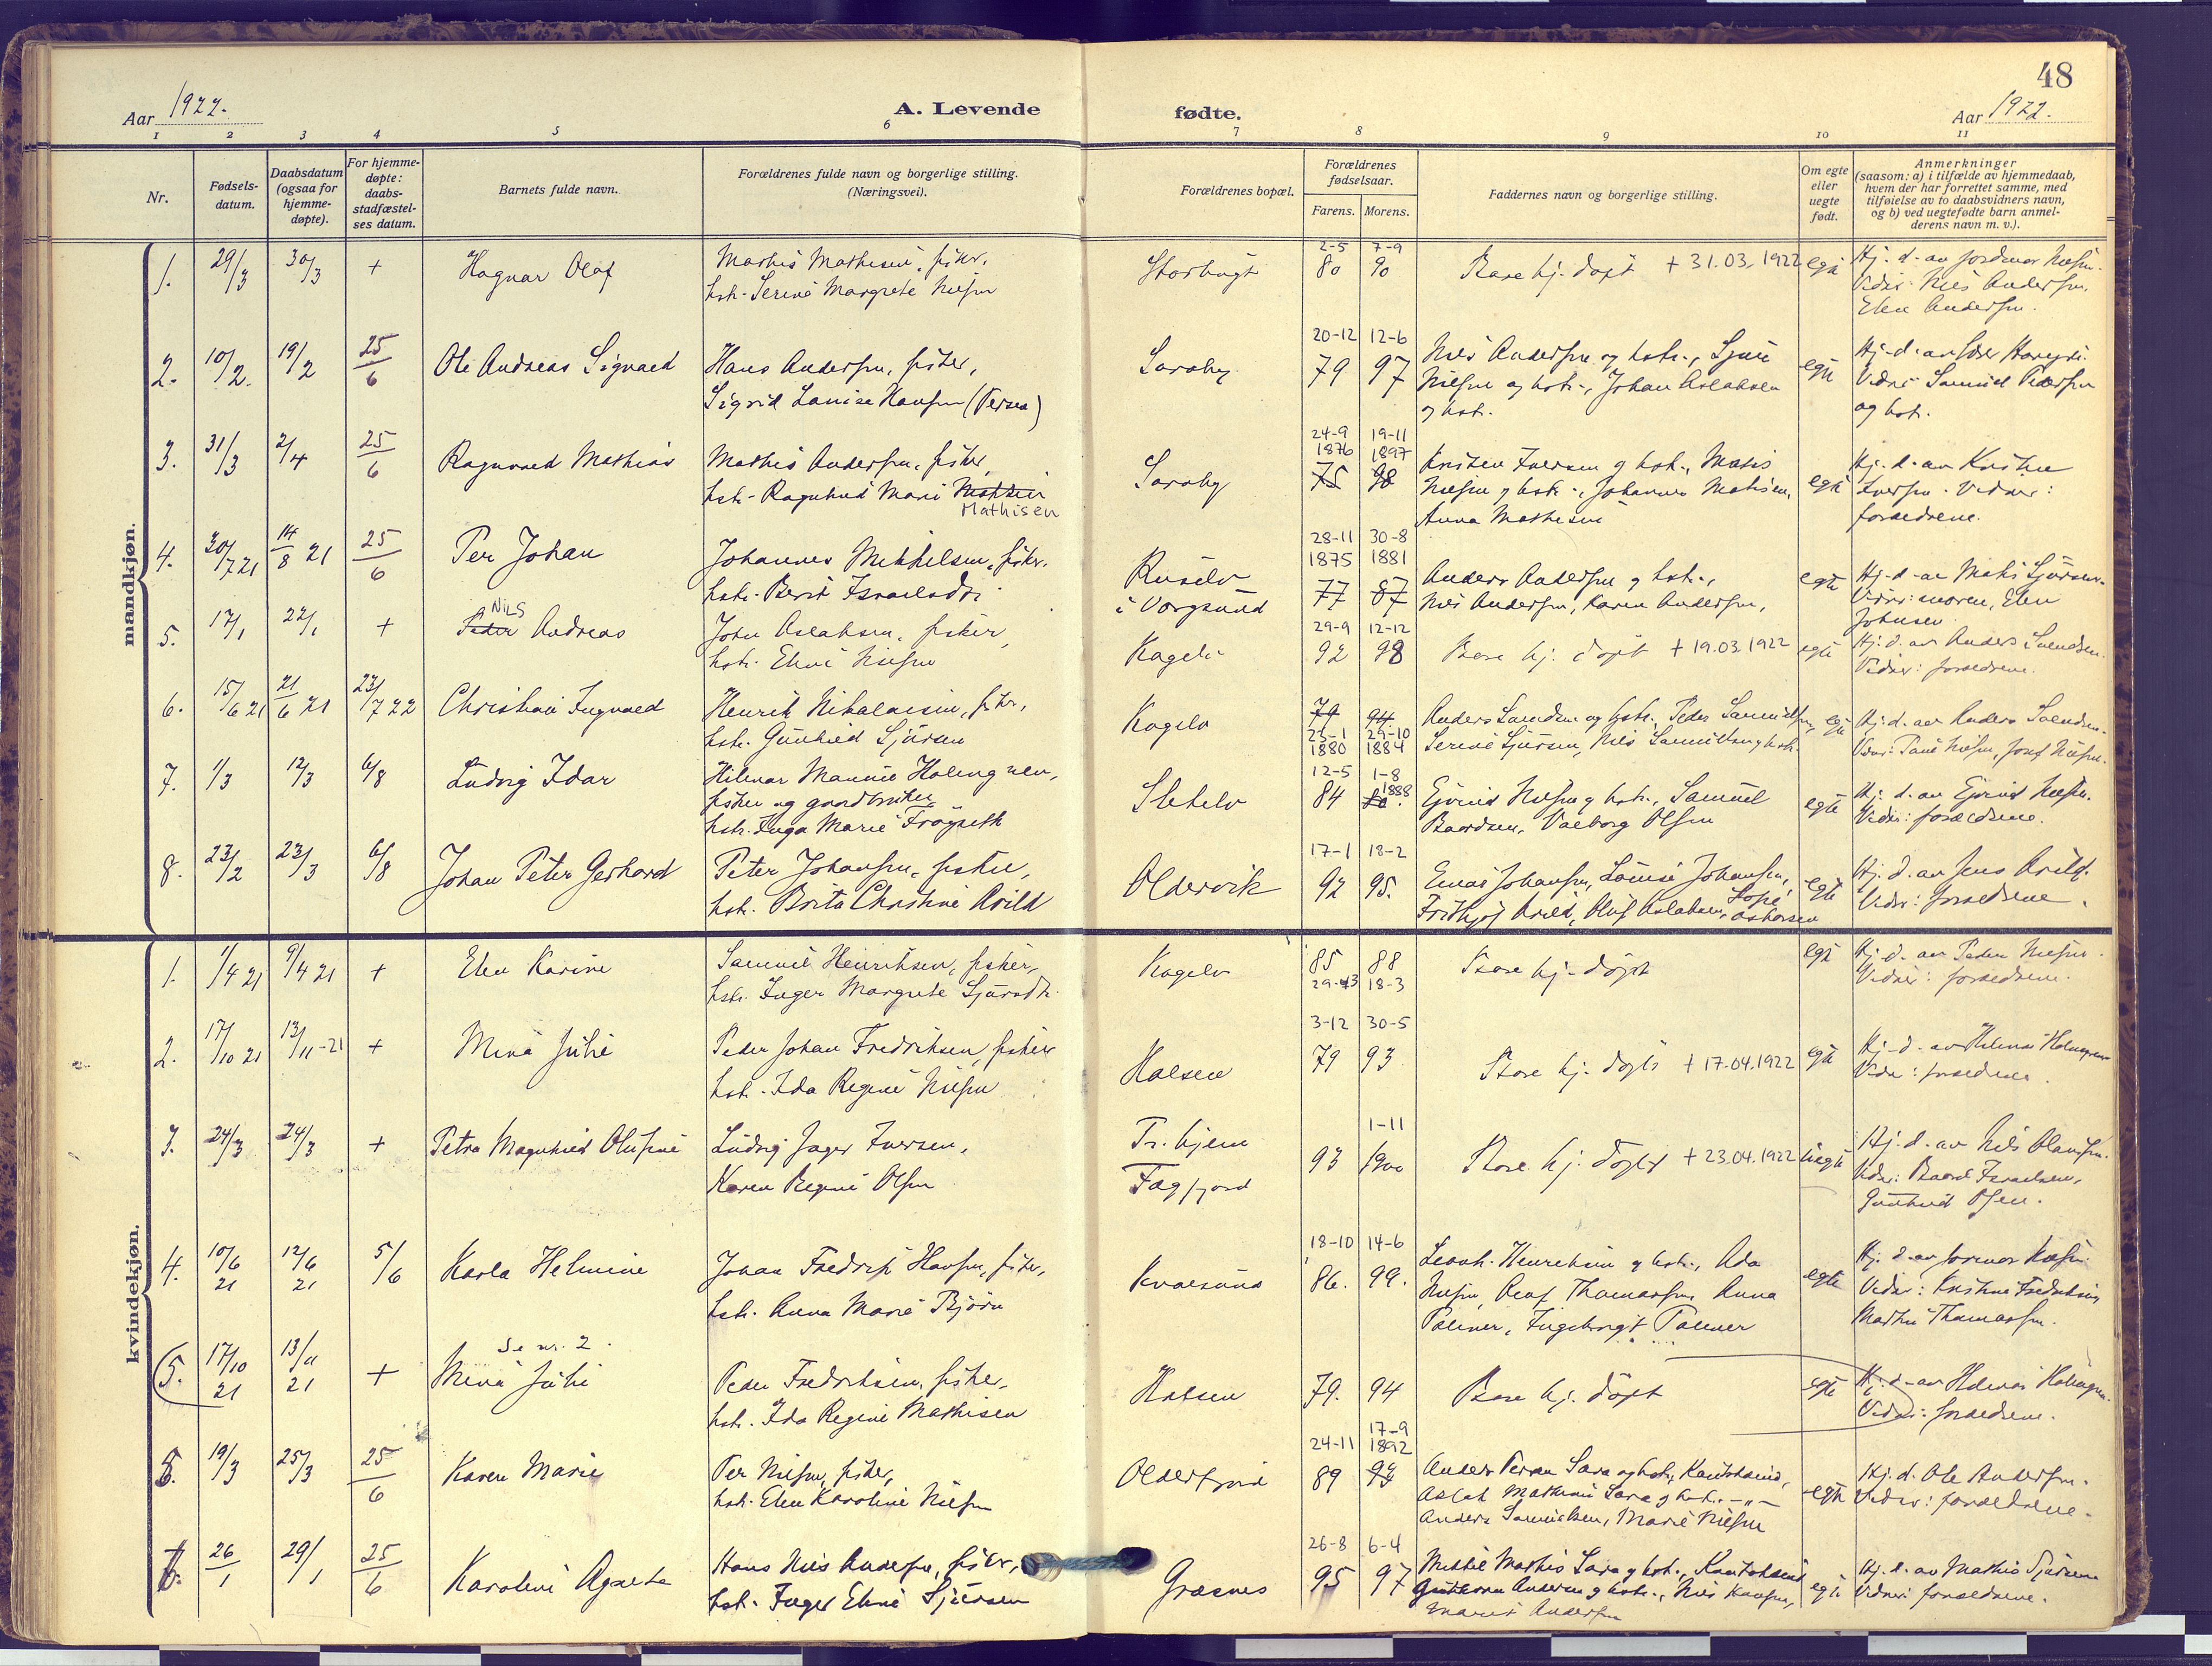 48
Aar 1922.
A. Levende fødte.
Aar 1922.
1 2 3 4 5 6 7 8 9 10 11
Nr.
Fødsels-
datum.
Daabsdatum
(ogsaa for
hjemme-
døpte).
For hjemme-
døpte:
daabs-
stadfæstel-
ses datum.
Barnets fulde navn.
Forældrenes fulde navn og borgerlige stilling.
(Næringsvei).
Forældrenes bopæl.
Forældrenes
fødselsaar.
Farens. Morens.
Faddernes navn og borgerlige stilling.
Om egte
eller
uegte
født.
Anmerkninger
(saasom: a) i tilfælde av hjemmedaab,
hvem der har forrettet samme, med
tilføielse av to daabsvidners navn,
og b) ved uegtefødte barn anmel-
derens navn m. v.).
mandkjøn.
1. 29/3 30/3 + Hagnar Olaf
Mathis Mathisen, fisker,
hstr. Serine Margrete Nilsen
2-5 7-9
80 90
Bare hj. døpt + 31.03.1922 egte
Vidner: Nils Andersen,
Elen Andersen.
2. 10/2. 19/2 25/6 Ole Andreas Sigvald
Hans Andersen, fisker,
Sigrid Louise Hansen (Persen)
Saraby
20-12 12-6
79 97
Nils Andersen og hstr., Sjur
Nilsen og hstr., Johan Aslaksen
og hstr.
egte
Vidner: Samuel Pedersen
og hstr.
3. 31/3 2/4 25/6 Ragnvald Mathias
Mathis Andersen, fisker,
hstr. Ragnhild Marie
Mathisen
Saraby
24-9 19-11
1876 1897
75 98
Kristen Iversen og hstr., Mathis
Nilsen og hstr., Johannes Mathisen,
Anna Mathisen
egte
Hj. d. av Kristen
Iversen. Vidner:
forældrene.
4. 30/7 21 14/8 21 25/6 Per Johan
Johannes Mikkelsen, fisker,
hstr. Berit Israelsdtr.
i Vargsund
28-11 30-8
1875 1881
77 87
Anders Andersen og hstr.,
Nils Andersen, Karen Andersen,
egte
Vidner: moren, Elen
Johnsen
5. 17/1 22/1 + Nils
Peder Andreas
John Aslaksen, fisker,
hstr. Eline Nilsen
Kogelv
29-9 12-12
92 98
Bare hj. døpt + 19.03.1922 egte
Hj. d. av Anders Svendsen.
Vidner: forældrene.
6. 15/6 21 21/6 21 23/7 22 Christian Ingvald
Henrik Nikolaisen, fisker,
hstr. Gunhild Sjursen
Kogelv
79 94
23-1 29-10
1880 1884
Anders Svendsen og hstr., Peder Samuelsen,
Serine Sjursen, Nils Samuelsen og hstr.
egte
Hj. d. av Anders Svendsen.
7. 1/3 12/3 6/8 Ludvig Idar
Hilmar Mannie Holmgren,
fisker og gaardbruker
hstr. Inga Marie Frøyseth
Sletelv
12-5 1-8
84 1888
Eivind Nilsen og hstr., Samuel
Baardsen, Valborg Olsen
egte
Hj. d. av Eivind Nilsen.
Vidner: forældrene.
8. 23/2 23/3 6/8 Johan Peter Gerhard
Peter Johansen, fisker,
hstr. Brita Christine Arild
Oldervik
17-1 18-2
92 95.
Enos Johansen, Louise Johansen,
Fridtjof Arild, Oluf Aslaksen,
egte
Hj. d. av Jens Arild.
Vidner: forældrene.
kvindekjøn.
1. 1/4 21 9/4 21 + Elen Karine
Samuel Henriksen, fisker,
hstr. Inger Margrete Sjursdtr.
Kogelv
85 88
18-3
Bare hj. døpt
egte
Hj. d. av Peder Nilsen.
Vidner: forældrene.
2. 17/10 21 13/11-21 + Mina Julie
Peder Johan Fredriksen, fisker
hstr. Ida Regine Nilsen
3-12 30-5
79 93
Bare hj. døpt + 17.04.1922 egte
Hj. d. av Hilmar Holmgren
Vidner: forældrene.
3. 24/3 24/3 + Petra Magnhild Olufine
Ludvig Jager Iversen,
Karen Regine Olsen
Tr.hjem
Fægfjord
1-11
93 1900
Bare hj. døpt + 23.04.1922 uegte
Vidner: Baard Israelsen,
Gunhild Olsen.
4. 10/6 21 12/6 21 5/6 Karla Helmine
Johan Fredrik Hansen, fisker,
hstr. Anna Marie Bjørn
Kvalsund
18-10 14-6
86. 99.
Leonh. Henriksen og hstr., Ada
Nilsen, Olaf Thomassen, Anna
Palmer, Ingeborg Palmer
egte
Vidner: Kristine Fredriksen
Marthe Thomassen.
Se nr. 2.
5. 17/10 21 13/11 21 + Mina Julie
Peder Fredriksen, fisker,
hstr. Ida Regine Mathisen
79. 94
Bare hj. døpt
egte
Hj. d. av Hilmar Holmgren.
Vidner: forældrene.
5. 19/3 25/3 25/6 Karen Marie
Per Nilsen, fisker,
hstr. Elen Karoline Nilsen
Olderfjord
17-9
24-11 1892
89
Anders Persen Sara og hstr., Kautokeino,
Aslak Mathisen Sara og hstr. -"-
Anders Samuelsen, Marie Nilsen
egte
Hj. d. Ole Andersen.
Vidner: forældrene.
6. 26/1 29/1 25/6 Karoline Agnete
Hans Nils Andersen, fisker,
hstr. Inger Eline Sjursen
Græsnes
26-8 6-4
95 97
Mikkel Mathis Sara og hstr., Kautokeino
Andersen og hstr., Nils Hansen,
Marit Andersen
egte
Hj. d. av Mathis Sjursen
Vidner: forældrene.